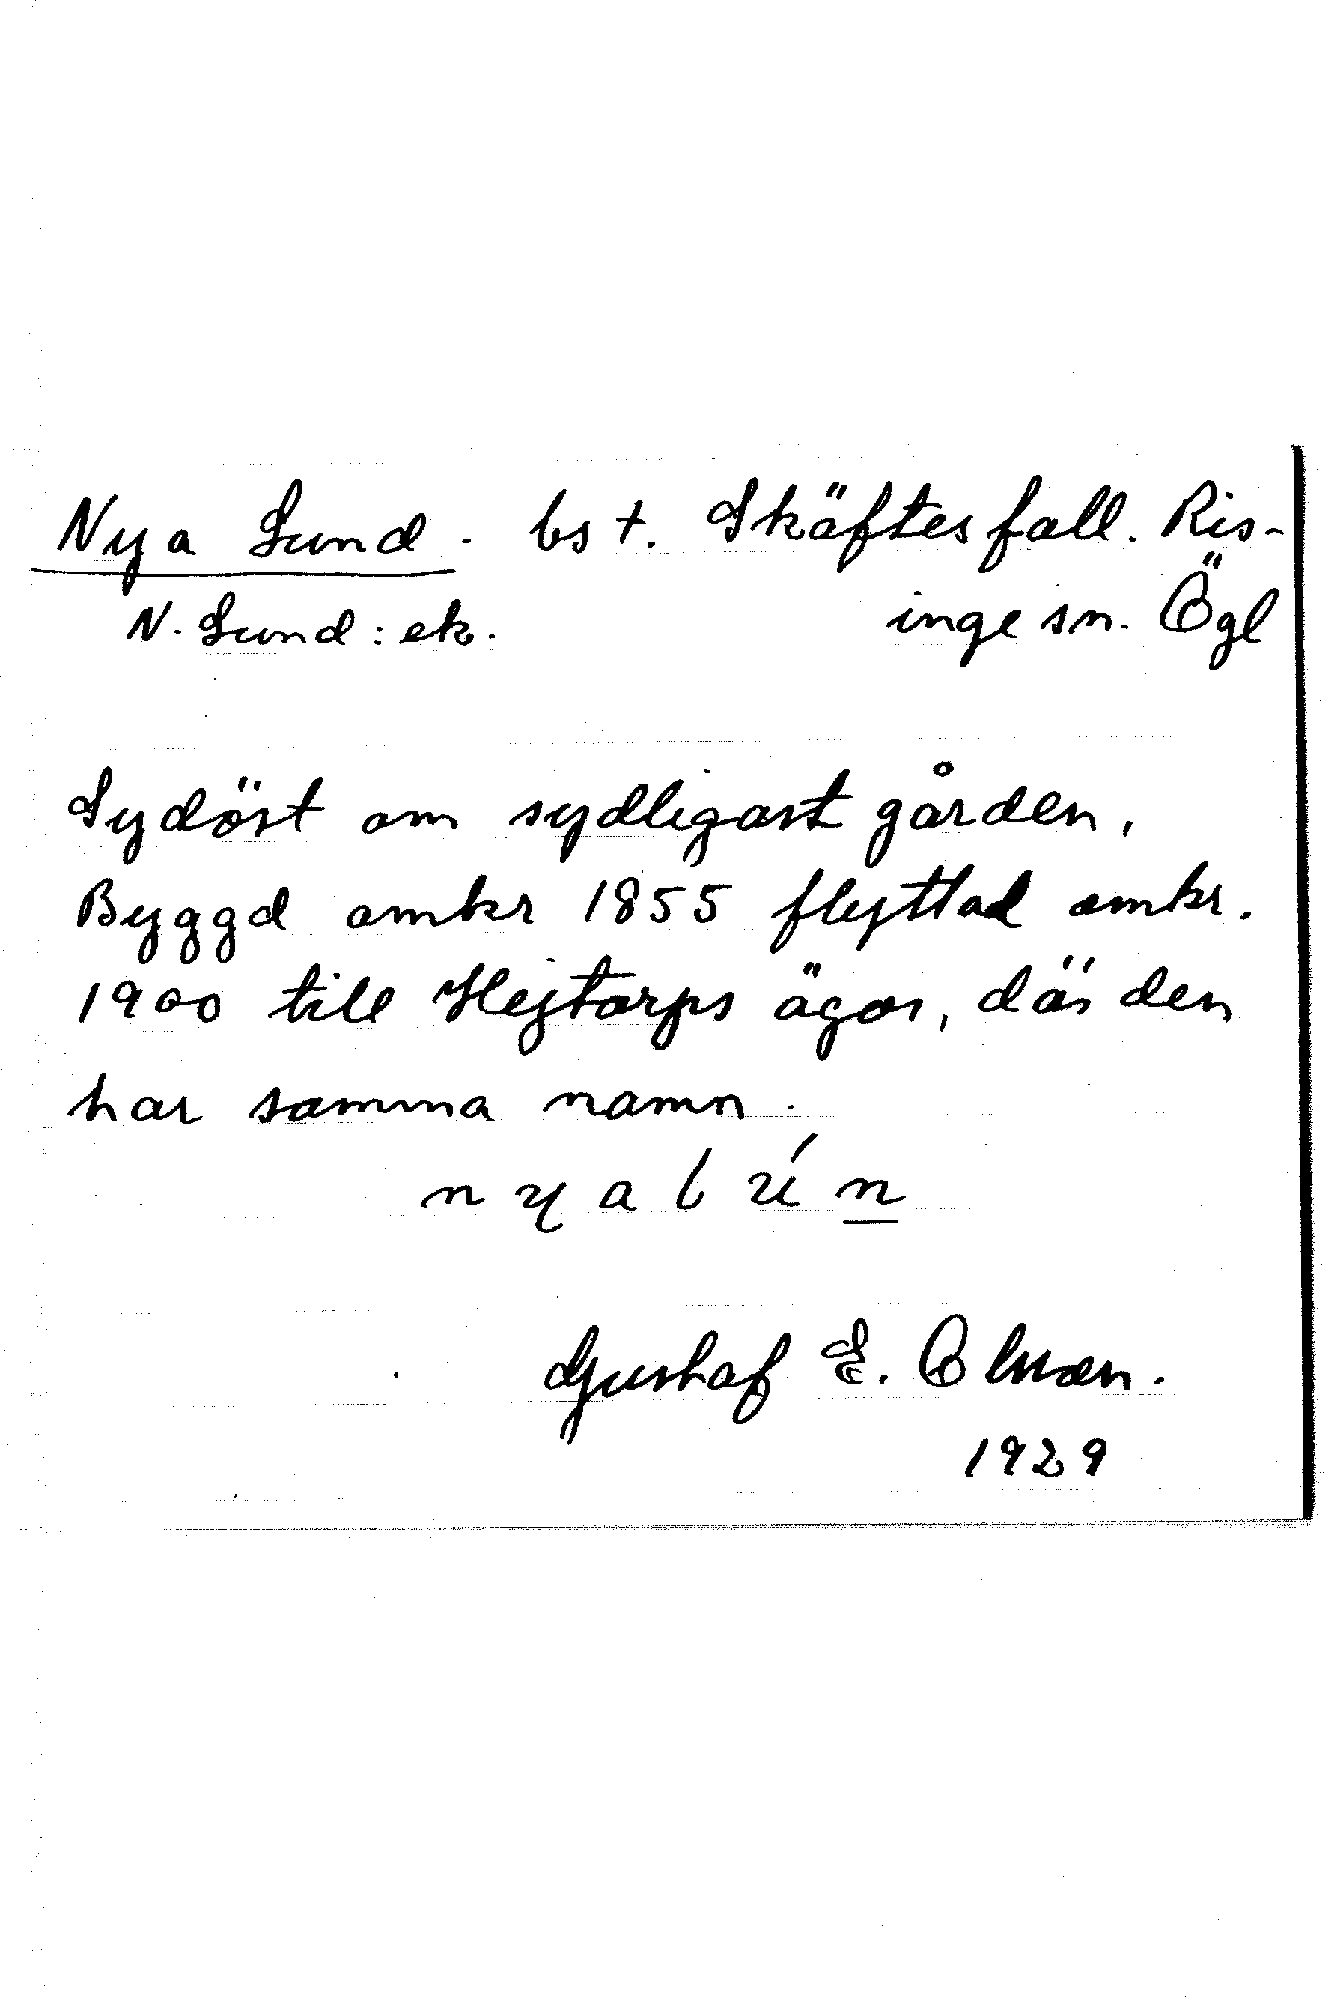 Nya Lund. bst. Skäftesfall. Ris-
N. Lund: ek. inge sn. Ögl
Sydöst om sydligast gården,
Byggd omkr 1855 flyttad omkr.
1900 till Hejtorps ägor, där den
har samma namn.
n y a l ú n
Gustaf E.
1929